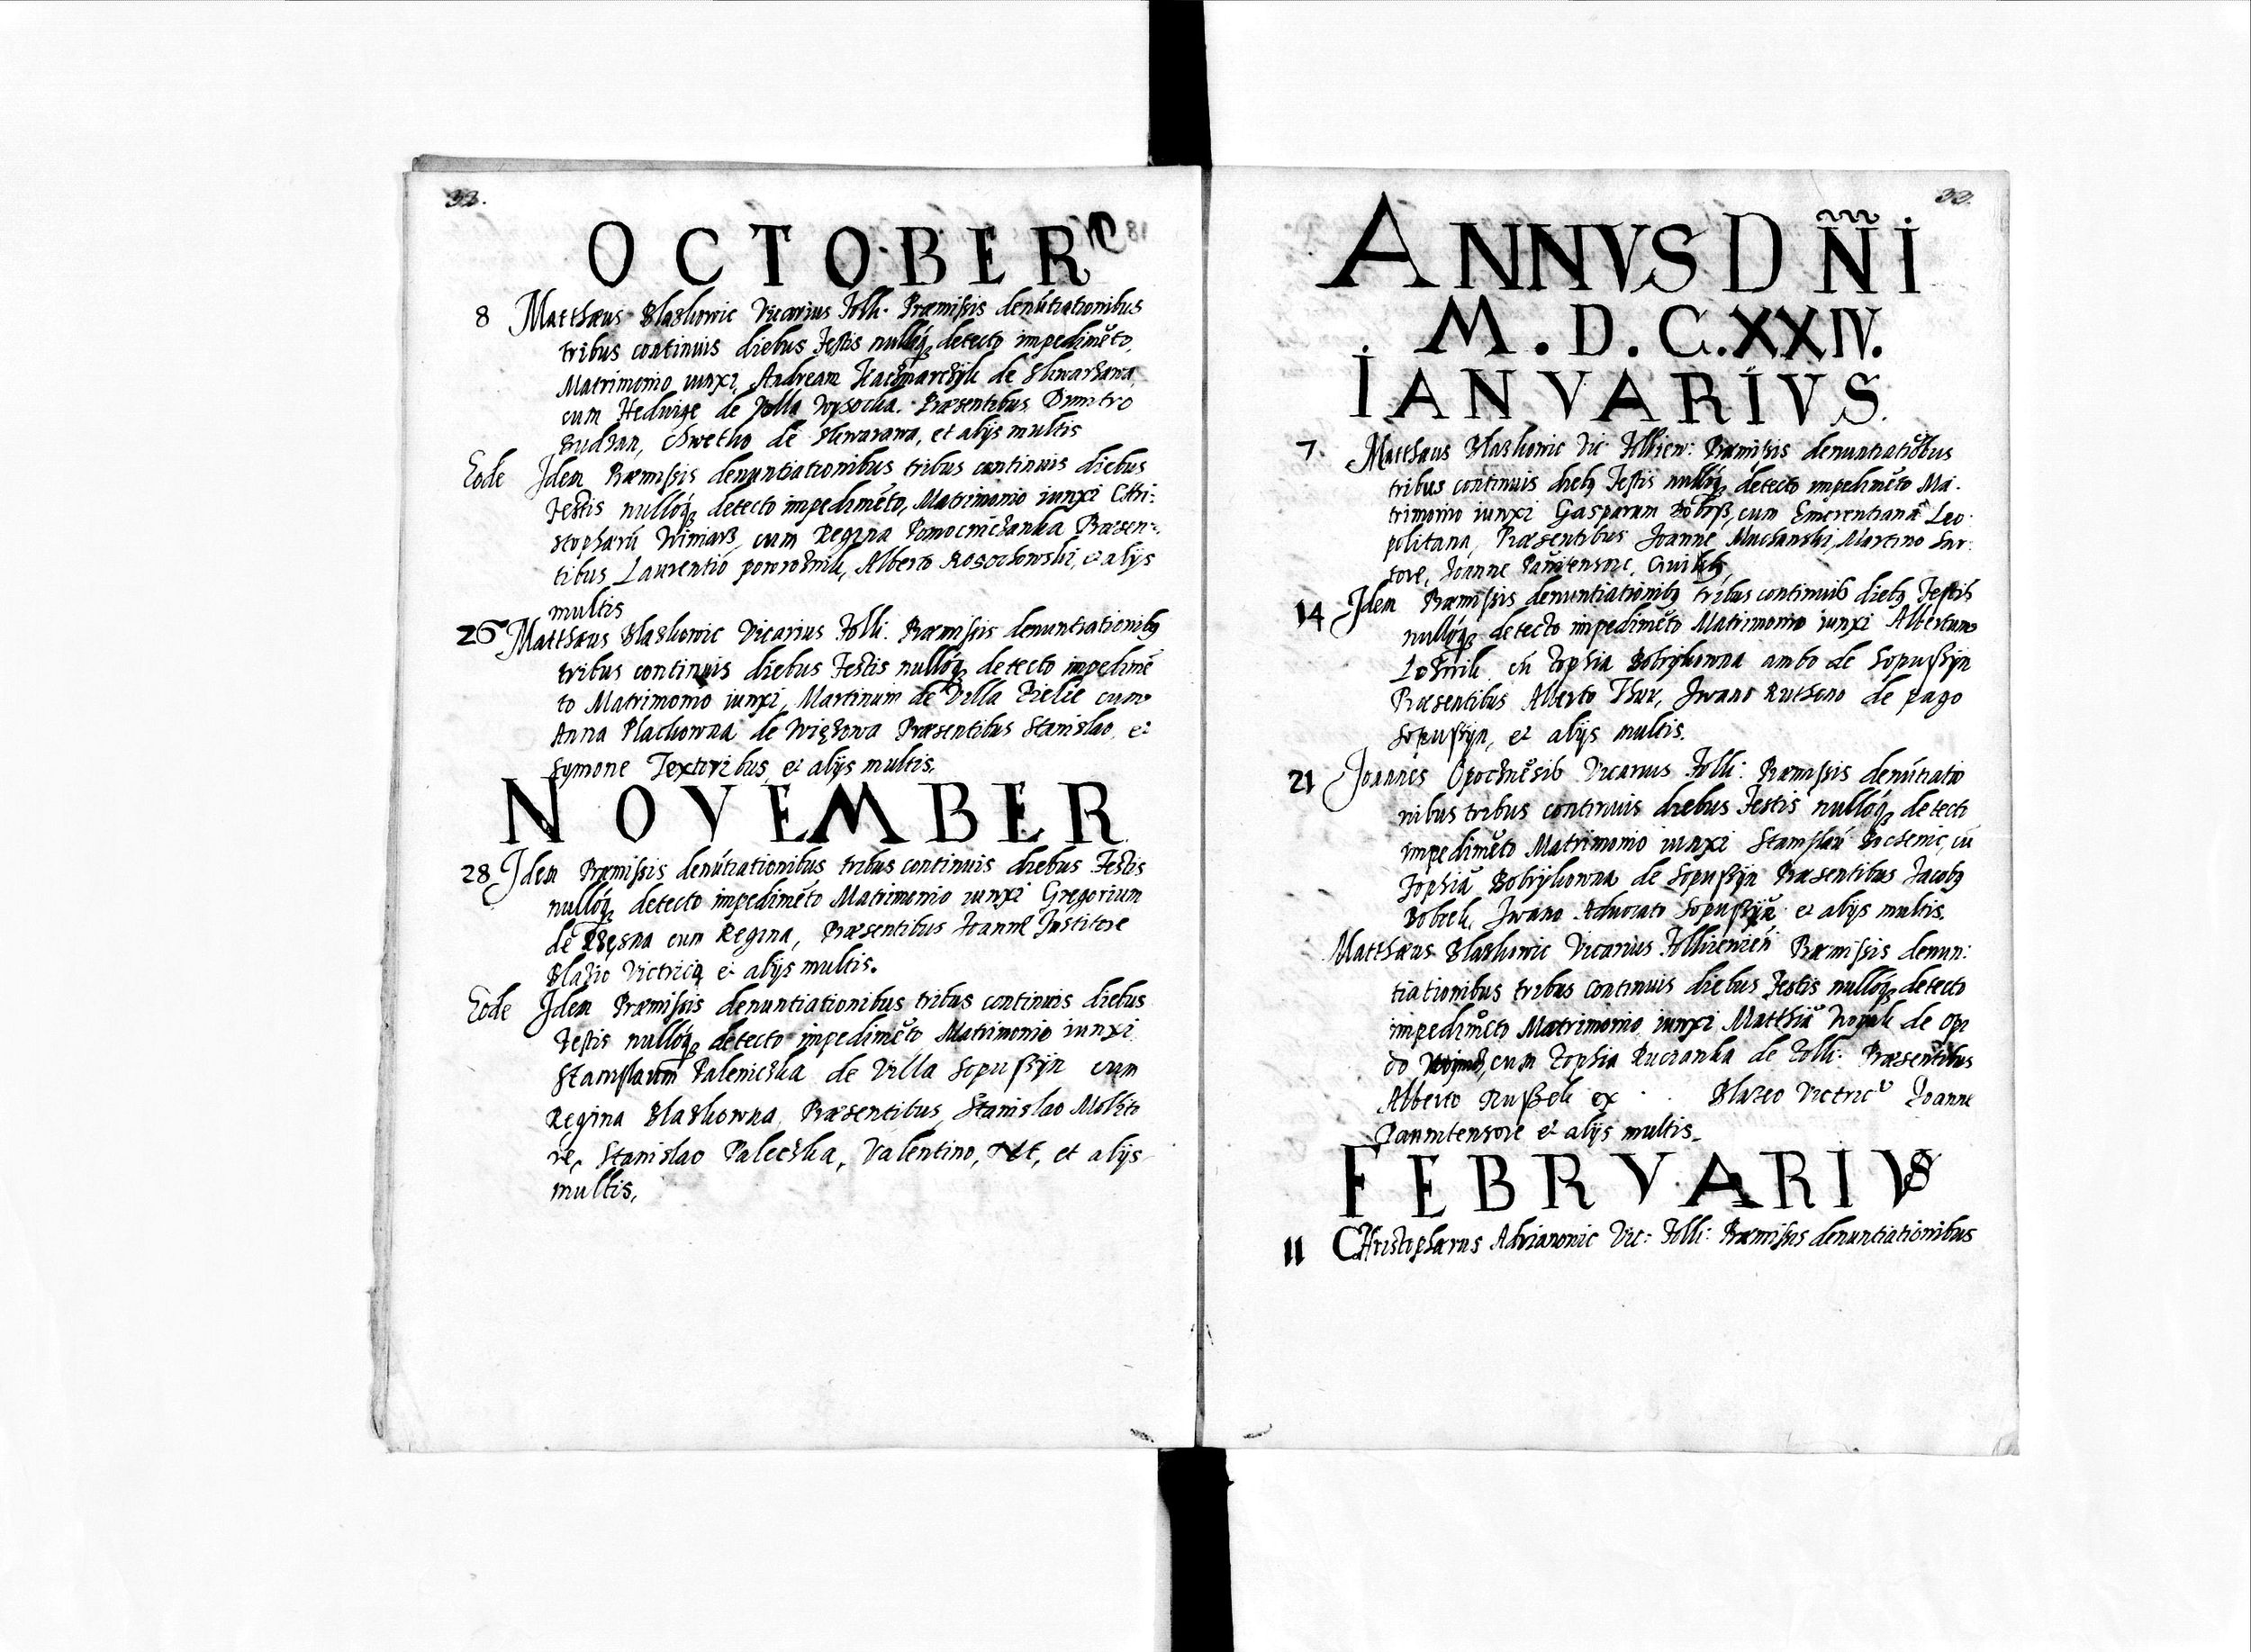 32.
OCTOBER
8 Matthæus Blaskowic Vicarius Zolk: Præmissis denūtiationibus
tribus continuis diebus Festis nullóq₃ detecto impedimēto,
Matrimonio iunxi, Andream Kaczmarczyk de Skwarzawa
cum Hedwige de Villa Wysocka. Præsentibus Dmitro
de Skwarzawa, et alijs multis
Eode Idem Præmissis denuntiationibus tribus continuis diebus
Festis nullóq₃ detecto impedimēto, Matrimonio iunxi Chri:
stopharū cum Regina Præsen:
tibus Laurentio Alberto Rosochowski, et alijs
multis
26 Matthæus Blaskowic Vicarius Zolk: Præmissis denuntiationib₉
tribus continuis diebus Festis nullóq₃ detecto impedimē
to Matrimonio iunxi, Martinum de Villa Bielie cum
Anna Plachowna de Præsentibus Stanislao et
Symone Textoribus, et alijs multis.
NOVEMBER
28 Idem Præmissis denūtiationibus tribus continuis diebus Festis
nullóq₃ detecto impedimēto Matrimonio iunxi Gregorium
de cum Regina, Præsentibus Joanne Institore
Blasio et alijs multis.
Eode Idem Præmissis denuntiationibus tribus continuis diebus
Festis nullóq₃ detecto impedimēto Matrimonio iunxi
Stanislaum Paleniczka de Villa Sopuszyn cum
Regina Blaskowna, Præsentibus, Stanislao Molito
re, Stanislao Paleczka, Valentino, et alijs
multis.
33
ANNVS DÑI
M.D.C.XXIV.
IANVARIVS.
7. Matthæus Blaskowic Vic: Zolkien: Præmissis denuntiatiōibus
tribus continuis dieb₉ Festis nullóq₃ detecto impedimēto Ma:
trimonio iunxi Gasparum cum Emerentiana Leo:
politana, Præsentibus Joanne Martino Sar:
tore, Joanne
14 Idem Præmissis denuntiationib₉ tribus continuis dieb₉ Festis
nullóq₃ detecto impedimēto Matrimonio iunxi Albertum
cū Zophia Bobrykowna ambo de Sopuszyn
Præsentibus Alberto Thur, Iwano Rutheno de pago
Sopuszyn, et alijs multis.
21 Joannes Vicarius Zolk: Præmissis denūtiatio
nibus tribus continuis diebus Festis nullóq₃ detecto
impedimēto Matrimonio iunxi Stanislaū cū
Zophia Bobrykowna de Sopuszyn Præsentibus Jacob₉
Bobrek, Iwano Advocato Sopuszyn, et alijs multis.
Matthæus Blaskowic Vicarius Zolkiewien Præmissis denun:
tiationibus tribus continuis diebus Festis nullóq₃ detecto
impedimēto Matrimonio iunxi Matthiā de opi
do cum Zophia de Zolk: Præsentibus
Alberto ex Blazeo Joanne
et alijs multis.
FEBRVARIVS
11 Christophorus Adrianowic Vic: Zolk: Præmissis denuntiationibus